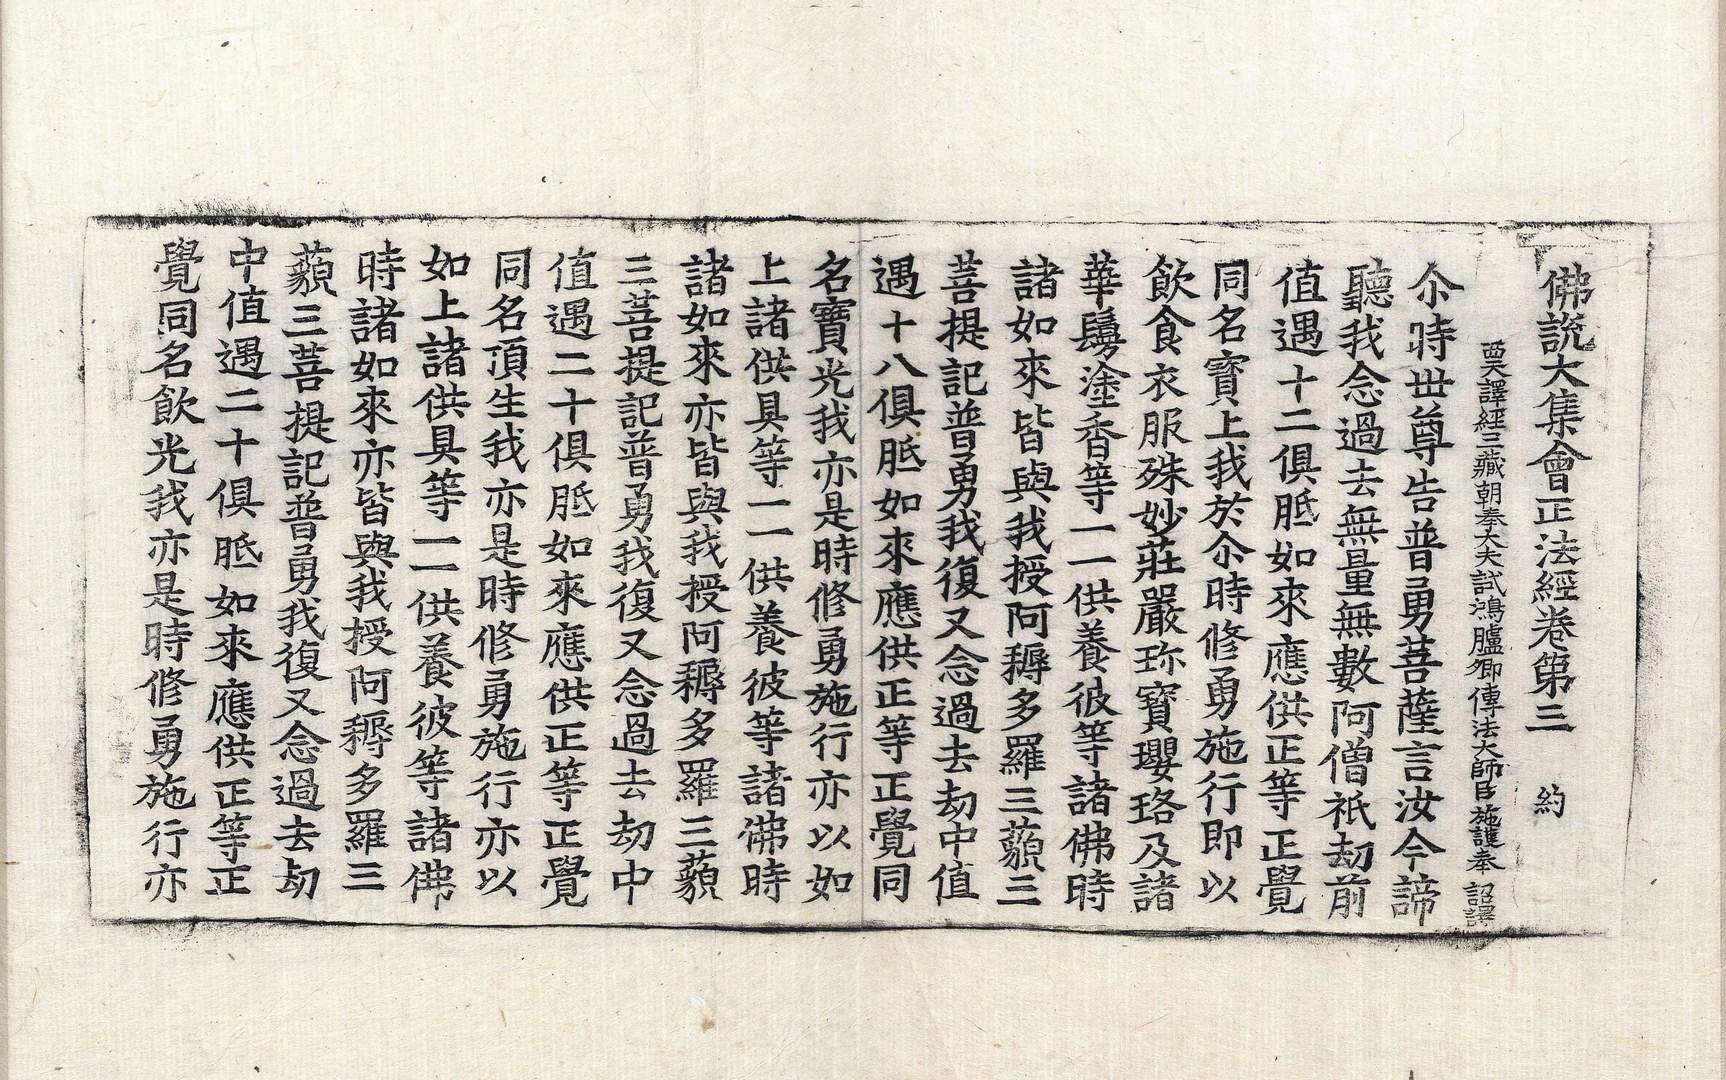 佛說大集會正法經卷第三　約
西天譯經三藏朝奉大夫試鴻臚卿傳法大師臣施護奉　詔譯
尒時世尊告普勇菩薩言汝今諦
聽我念過去無量無數阿僧祇劫前
值遇十二俱胝如來應供正等正覺
同名寶上我於尒時修勇施行即以
飲食衣服殊妙莊嚴珎寶瓔珞及諸
華鬘塗香等一一供養彼等諸佛時
諸如來皆與我授阿耨多羅三藐三
菩提記普勇我復又念過去劫中值
遇十八俱胝如來應供正等正覺同
名寶光我亦是時修勇施行亦以如
上諸供具等一一供養彼等諸佛時
諸如來亦皆與我授阿耨多羅三藐
三菩提記普勇我復又念過去劫中
值遇二十俱胝如來應供正等正覺
同名頂生我亦是時修勇施行亦以
如上諸供具等一一供養彼等諸佛
時諸如來亦皆與我授阿耨多羅三
藐三菩提記普勇我復又念過去劫
中值遇二十俱胝如來應供正等正
覺同名飲光我亦是時修勇施行亦